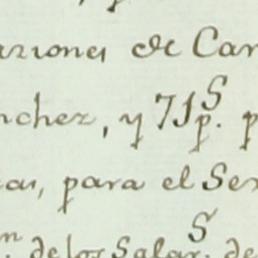 aziones de Car
nchez, y 71 p.s p
cas, para el Ser
m de los Salar.s de